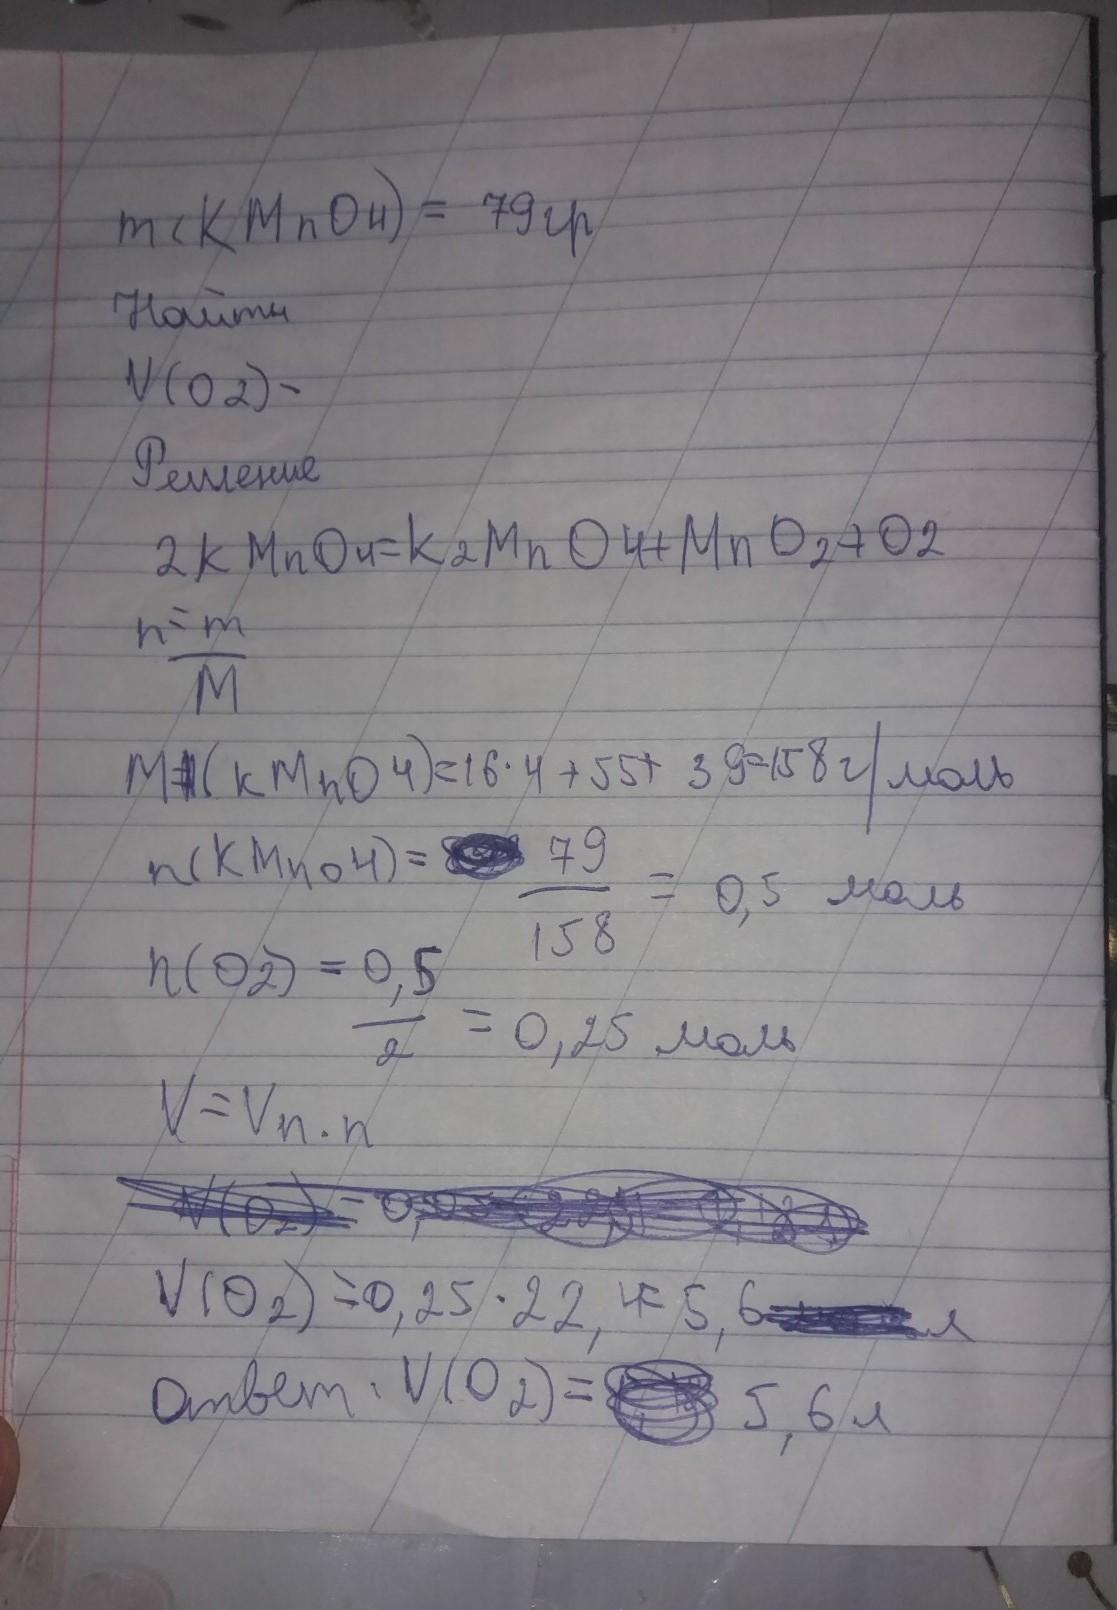 m(KMnO4) = 79гр
Найти
V(O2)-
Решение
2KMnO4=K2MnO4+MnO2+O2
n=m
M
M(KMnO4)=16·4+55+39=158г/моль
n(KMnO4)= 79
158 = 0,5 моль
n(O2) = 0,5
2 = 0,25 моль
V=Vn·n
V(O2)=0,25·22,4=5,6 л
Ответ: V(O2)= 5,6л